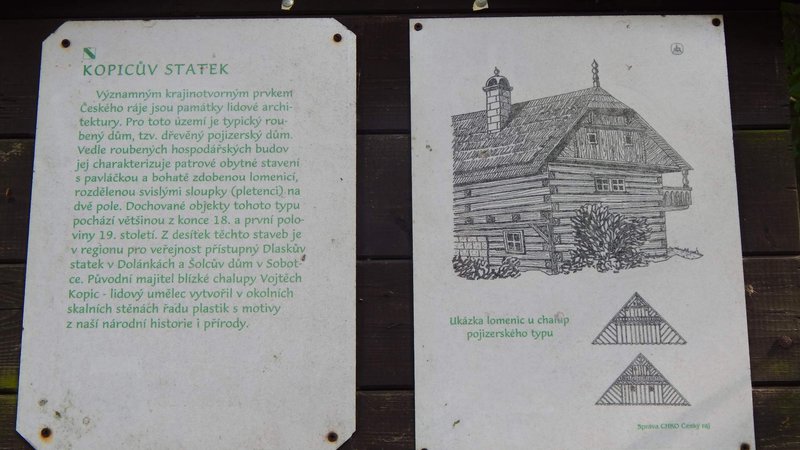 KOPICŮV STATEK
Významným krajinotvorným prvkem
Českého ráje jsou památky lidové archi-
tektury. Pro toto území je typický rou-
bený dům, tzv. dřevěný pojizerský dům.
Vedle roubených hospodářských budov
jej charakterizuje patrové obytné stavení
s pavláčkou a bohatě zdobenou lomenicí,
rozdělenou svislými sloupky (pletenci) na
dvě pole. Dochované objekty tohoto typu
pochází většinou z konce 18. a první polo-
viny 19. století. Z desítek těchto staveb je
v regionu pro veřejnost přístupný Dlaskův
statek v Dolánkách a Šolcův dům v Sobot-
ce. Původní majitel blízké chalupy Vojtěch
Kopic - lidový umělec vytvořil v okolních
skalních stěnách řadu plastik s motivy
z naší národní historie i přírody.
Ukázka lomenic u chalup
pojizerského typu
Správa CHKO Český ráj